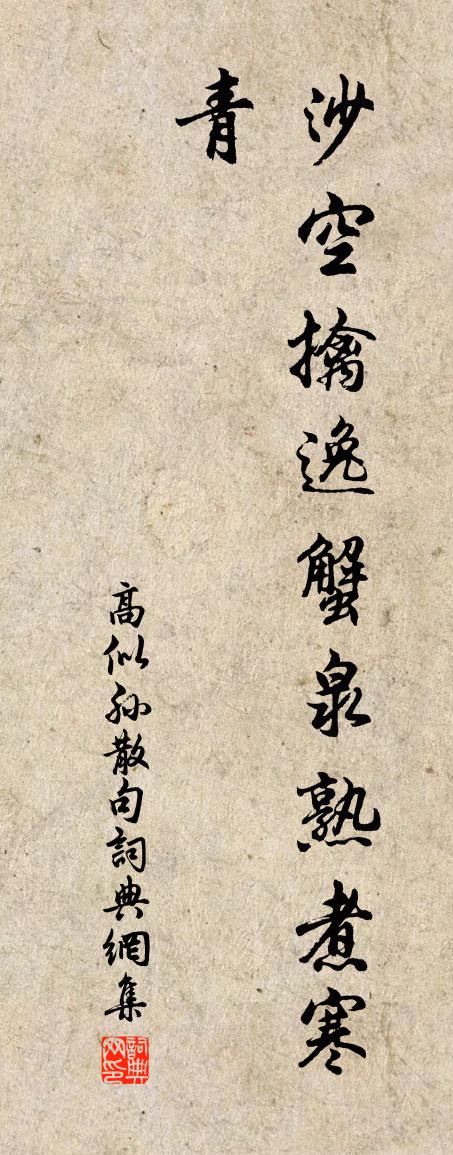 沙空擒逸蟹泉熟煮寒
青
高似孙散句詞典網集
詞典
网印